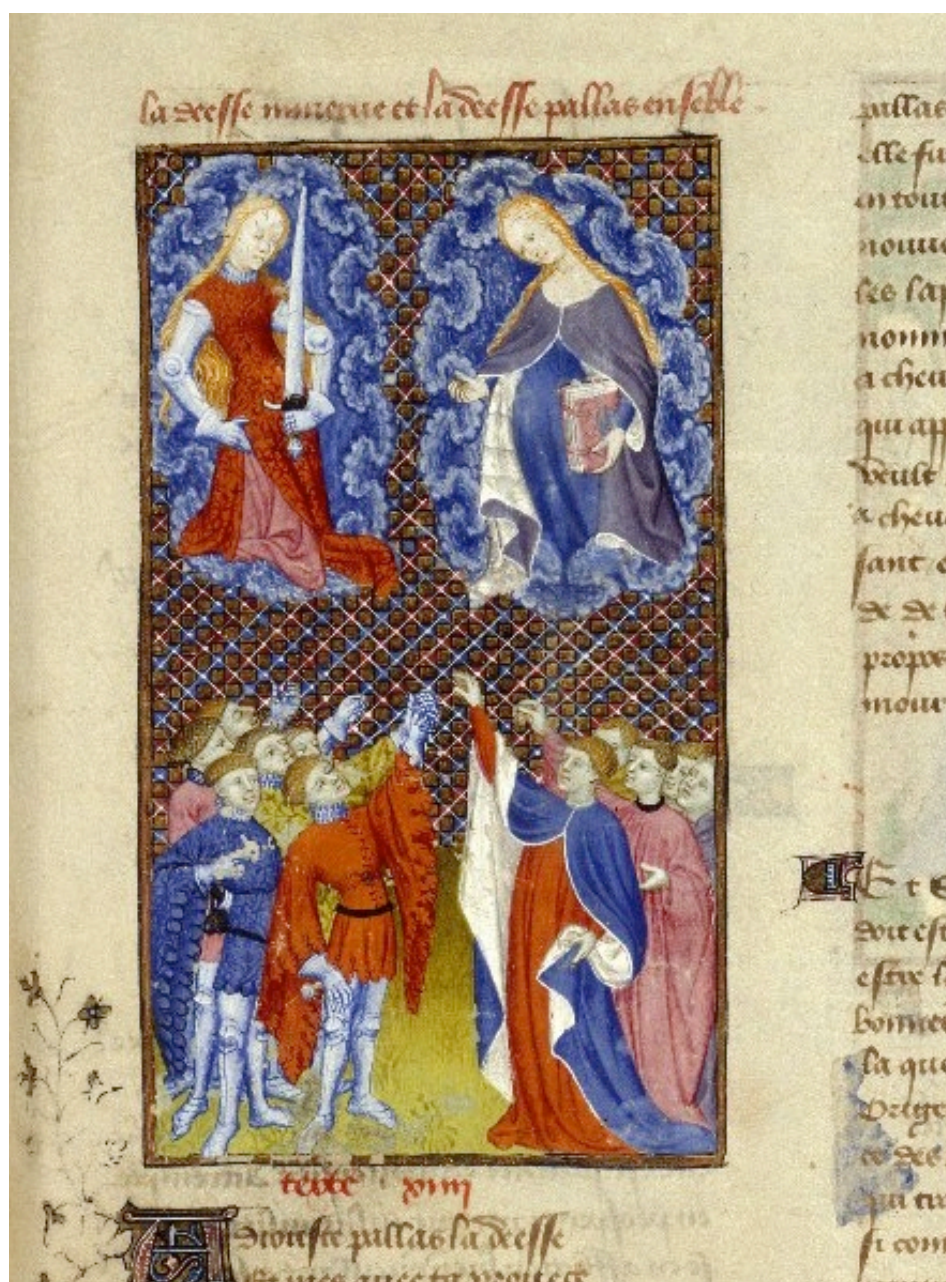 la deesse minerue et la deesse pallas enseble
texte xiiii
Adiouste pallas la deesse
Et mes auec ta prouece
pallas
elle fu
en tout
nouue
les sap
nomm
a cheu
qui app
veult
a cheu
sant
de de
propos
mour
Et
doit est
estre
bonne
la que
Orige
ce des
qui
si com